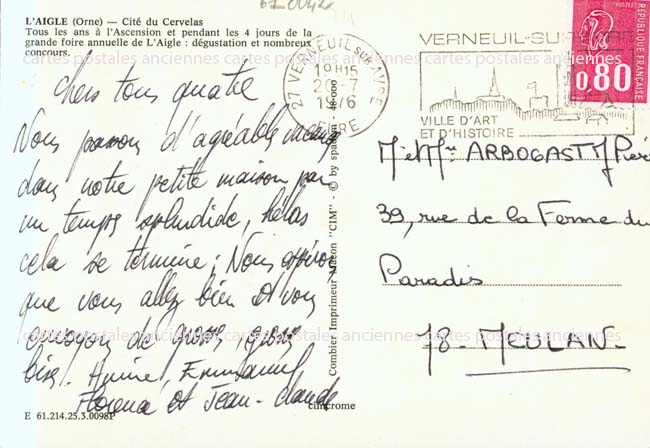 61 0042
L'AIGLE (Orne) — Cité du Cervelas
Tous les ans à l'Ascension et pendant les 4 jours de la
grande foire annuelle de L'Aigle : dégustation et nombreux
concours.
cartes postales anciennes cartes postales anciennes cartes postales anciennes
Chers tous quatre
Nous passons d'agréables vacances
dans notre petite maison par
un temps splendide, hélas
cela se termine ; Nous espérons
que vous allez bien et vous
envoyons de grosses, grosses
bises. Annie, Emmanuel,
Florence et Jean-Claude
27 VERNEUIL SUR AVRE
19H15
-7
1976
EURE
VERNEUIL-SUR
VILLE D'ART
ET D'HISTOIRE
0,80
RÉPUBLIQUE FRANÇAISE
Combier Imprimeur Macon "CIM" - © by spadem -
M et Mme ARBOGAST
39, rue de la Ferme du
Paradis
78 - MEULAN -
cartes postales anciennes cartes postales anciennes cartes postales anciennes
E 61.214.25.3.0098P
cimcrome